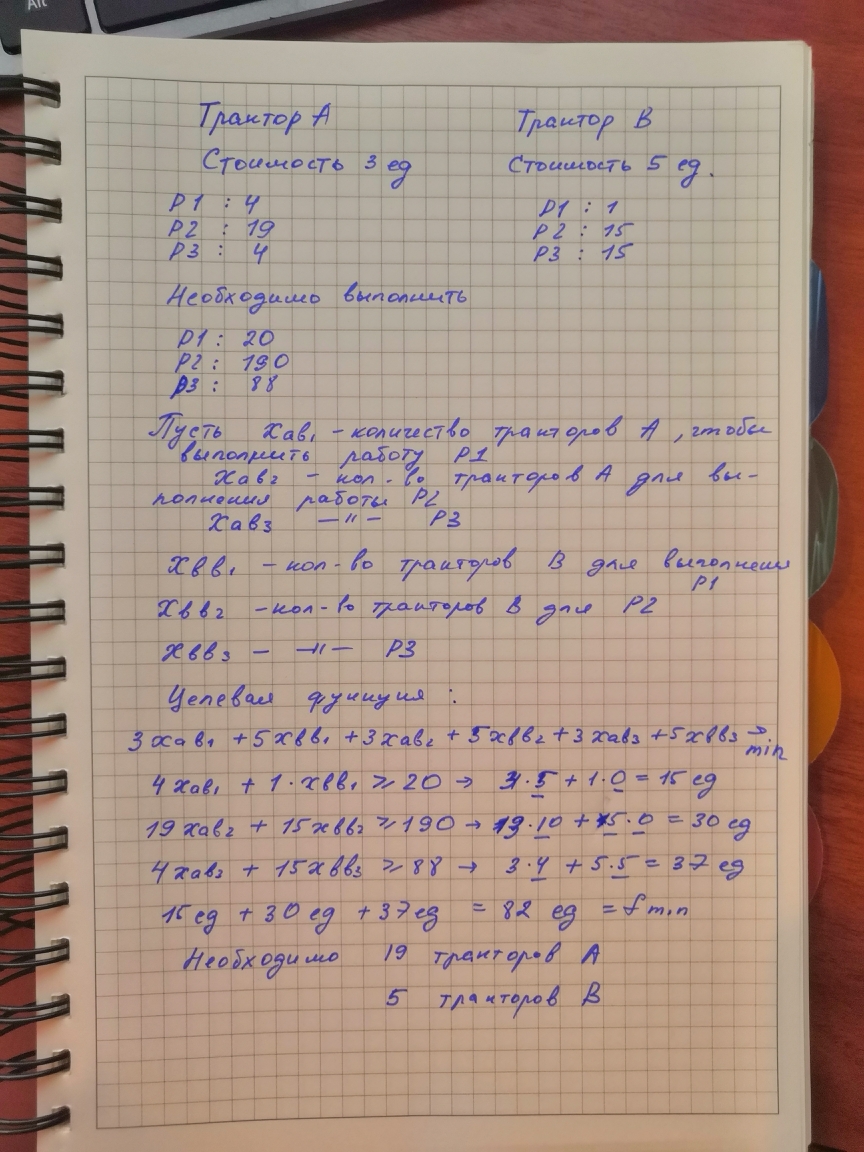 Alt
Трактор А Трактор В
Стоимость 3 ед Стоимость 5 ед.
P1 : 4 P1 : 1
P2 : 19 P2 : 15
P3 : 4 P3 : 15
Необходимо выполнить
P1 : 20
P2 : 190
P3 : 88
Пусть Xaв₁ - количество тракторов А, чтобы
выполнить работу P1
Xaв₂ - кол-во тракторов А для вы-
полнения работы P2
Xaв₃ —"— P3
Xвв₁ - кол-во тракторов В для выполнения
P1
Xвв₂ - кол-во тракторов В для P2
Xвв₃ - —"— P3
Целевая функция :
3xaв₁ + 5xвв₁ + 3xaв₂ + 5xвв₂ + 3xaв₃ + 5xвв₃ → min
4xaв₁ + 1·xвв₁ ≥ 20 → 3·5 + 1·0 = 15 ед
19xaв₂ + 15xвв₂ ≥ 190 → ·10 + 5·0 = 30 ед
4xaв₃ + 15xвв₃ ≥ 88 → 3·4 + 5·5 = 37 ед
15ед + 30ед + 37ед = 82 ед = fmin
Необходимо 19 тракторов А
5 тракторов В